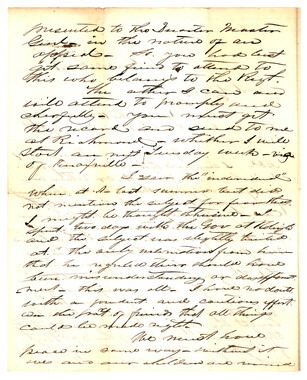 presented to the Quarter Master
Genl in the nature of an
appeal - So you had best
get some one to attend to
this who belongs to the Regt.
The other I can and
will attend to promptly and
cheerfully - You must get
the record and send to me
at Richmond, whither I will
start on next Tuesday week - via
I saw the "individual"
when at last summer but did
not mention the subject for fear that
I might be thought
spent two days with the Gov at Raleigh
and the subject was slightly hinted
at - the only intimation from him
that he regretted there should have
been misunderstanding or disagree
ment - this was all - I have no doubt
with a prudent and cautious effort
on the part of friends that all things
could be made right -
We must have
peace in some way - without it
we and our children are ruined